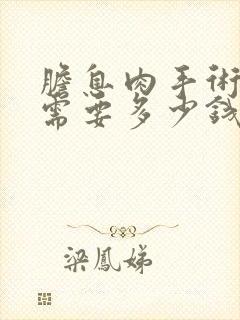 膽息肉手術
需要多少錢
梁鳳娣